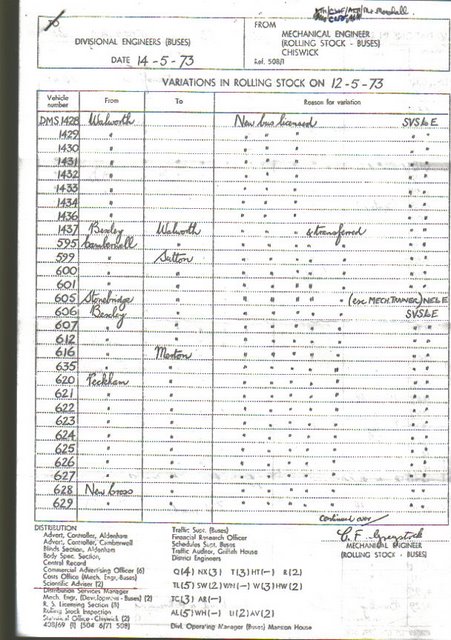 TO
DIVISIONAL ENGINEERS (BUSES)
DATE 14-5-73
Mr Marshall
FROM
MECHANICAL ENGINEER
(ROLLING STOCK - BUSES)
CHISWICK
Ref. 508/1
VARIATIONS IN ROLLING STOCK ON 12-5-73
Vehicle number From To Reason for variation
DMS 1428 Walworth New bus licensed SVS & E
1429 " " " " " "
1430 " " " " " "
1431 " " " " " "
1432 " " " " " "
1433 " " " " " "
1434 " " " " " "
1436 " " " " " "
1437 Bexley Walworth " " " & transferred " "
595 Camberwell " " " " " " " "
599 " Sutton " " " " " " "
600 " " " " " " " " "
601 " " " " " " " " "
605 Stonebridge " " " " " " (ex MECH TRAINER) NEL E
606 Bexley " " " " " " SVS & E
607 " " " " " " " " "
612 " " " " " " " " "
616 " Merton " " " " " " "
635 " " " " " " " " "
620 Peckham " " " " " " " "
621 " " " " " " " " "
622 " " " " " " " " "
623 " " " " " " " " "
624 " " " " " " " " "
625 " " " " " " " " "
626 " " " " " " " " "
627 " " " " " " " " "
628 New Cross " " " " " " " "
629 " " " " " " " " "
Continued over
MECHANICAL ENGINEER
(ROLLING STOCK - BUSES)
DISTRIBUTION
Advert. Controller, Aldenham
Advert. Controller, Camberwell
Blinds Section, Aldenham
Body Spec. Section,
Central Record
Commercial Advertising Officer (6)
Costs Office (Mech. Engr. Buses)
Scientific Adviser (2)
Distribution Services Manager
Mech. Engr. (Development - Buses) (2)
R. S. Licensing Section (3)
Rolling Stock Inspection
Statistical Office - Chiswick (2)
408/69 (1) (504 6/71 508)
Traffic Supt. (Buses)
Financial Research Officer
Schedules Supt. Buses
Traffic Auditor, Griffith House
District Engineers
Q(4) NX(3) T(3) HT(-) R(2)
TL(5) SW(2) WH(-) W(3) HW(2)
TC(3) AR(-)
AL(5) WH(-) U(2) AV(2)
Divl. Operating Manager (Buses) Manson House